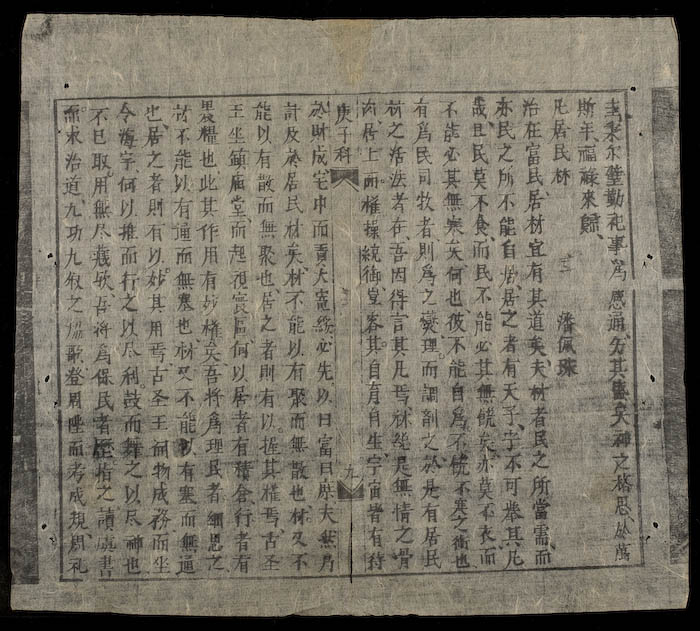 斯年福祿來歸
凡居民材 潘佩珠
治在富民居材宜有其道矣夫材者民之所當需而
亦民之所不能自居居之者有天子乎不可舉其凡
哉且民莫不食而民不能必其無饒矣亦莫不衣而
不能必其無寒矣何也彼不能自爲不饒不寒之術也
有爲民司牧者則爲之燮理而調劑之於是有居民
材之活法者在吾因得言其凡焉材總是無情之骨
肉居上而權操統御皇眷其自育自生宇宙皆有待
庚子科 九
於財成宅中而責大寵綏必先以曰富曰庶夫無乃
計及於居民材矣材不能以有聚而無散也材又不
能以有散而無聚也居之者則有以握其權焉古圣
王坐鎮廟堂而起視寰區何以居者有積倉行者有
裹糧也此其作用有妙權矣吾將爲理民者細思之
不能以有通而無塞也材又不能以有塞而無通
也居之者則有以妙其用焉古圣王開物成務而坐
令海宇何以推而行之以尽利鼓而舞之以尽神也
不已取用無尽藏欤吾將爲保民者歷指之讀虞書
而求治道九功九叙之協歌登周陛而考成規周礼